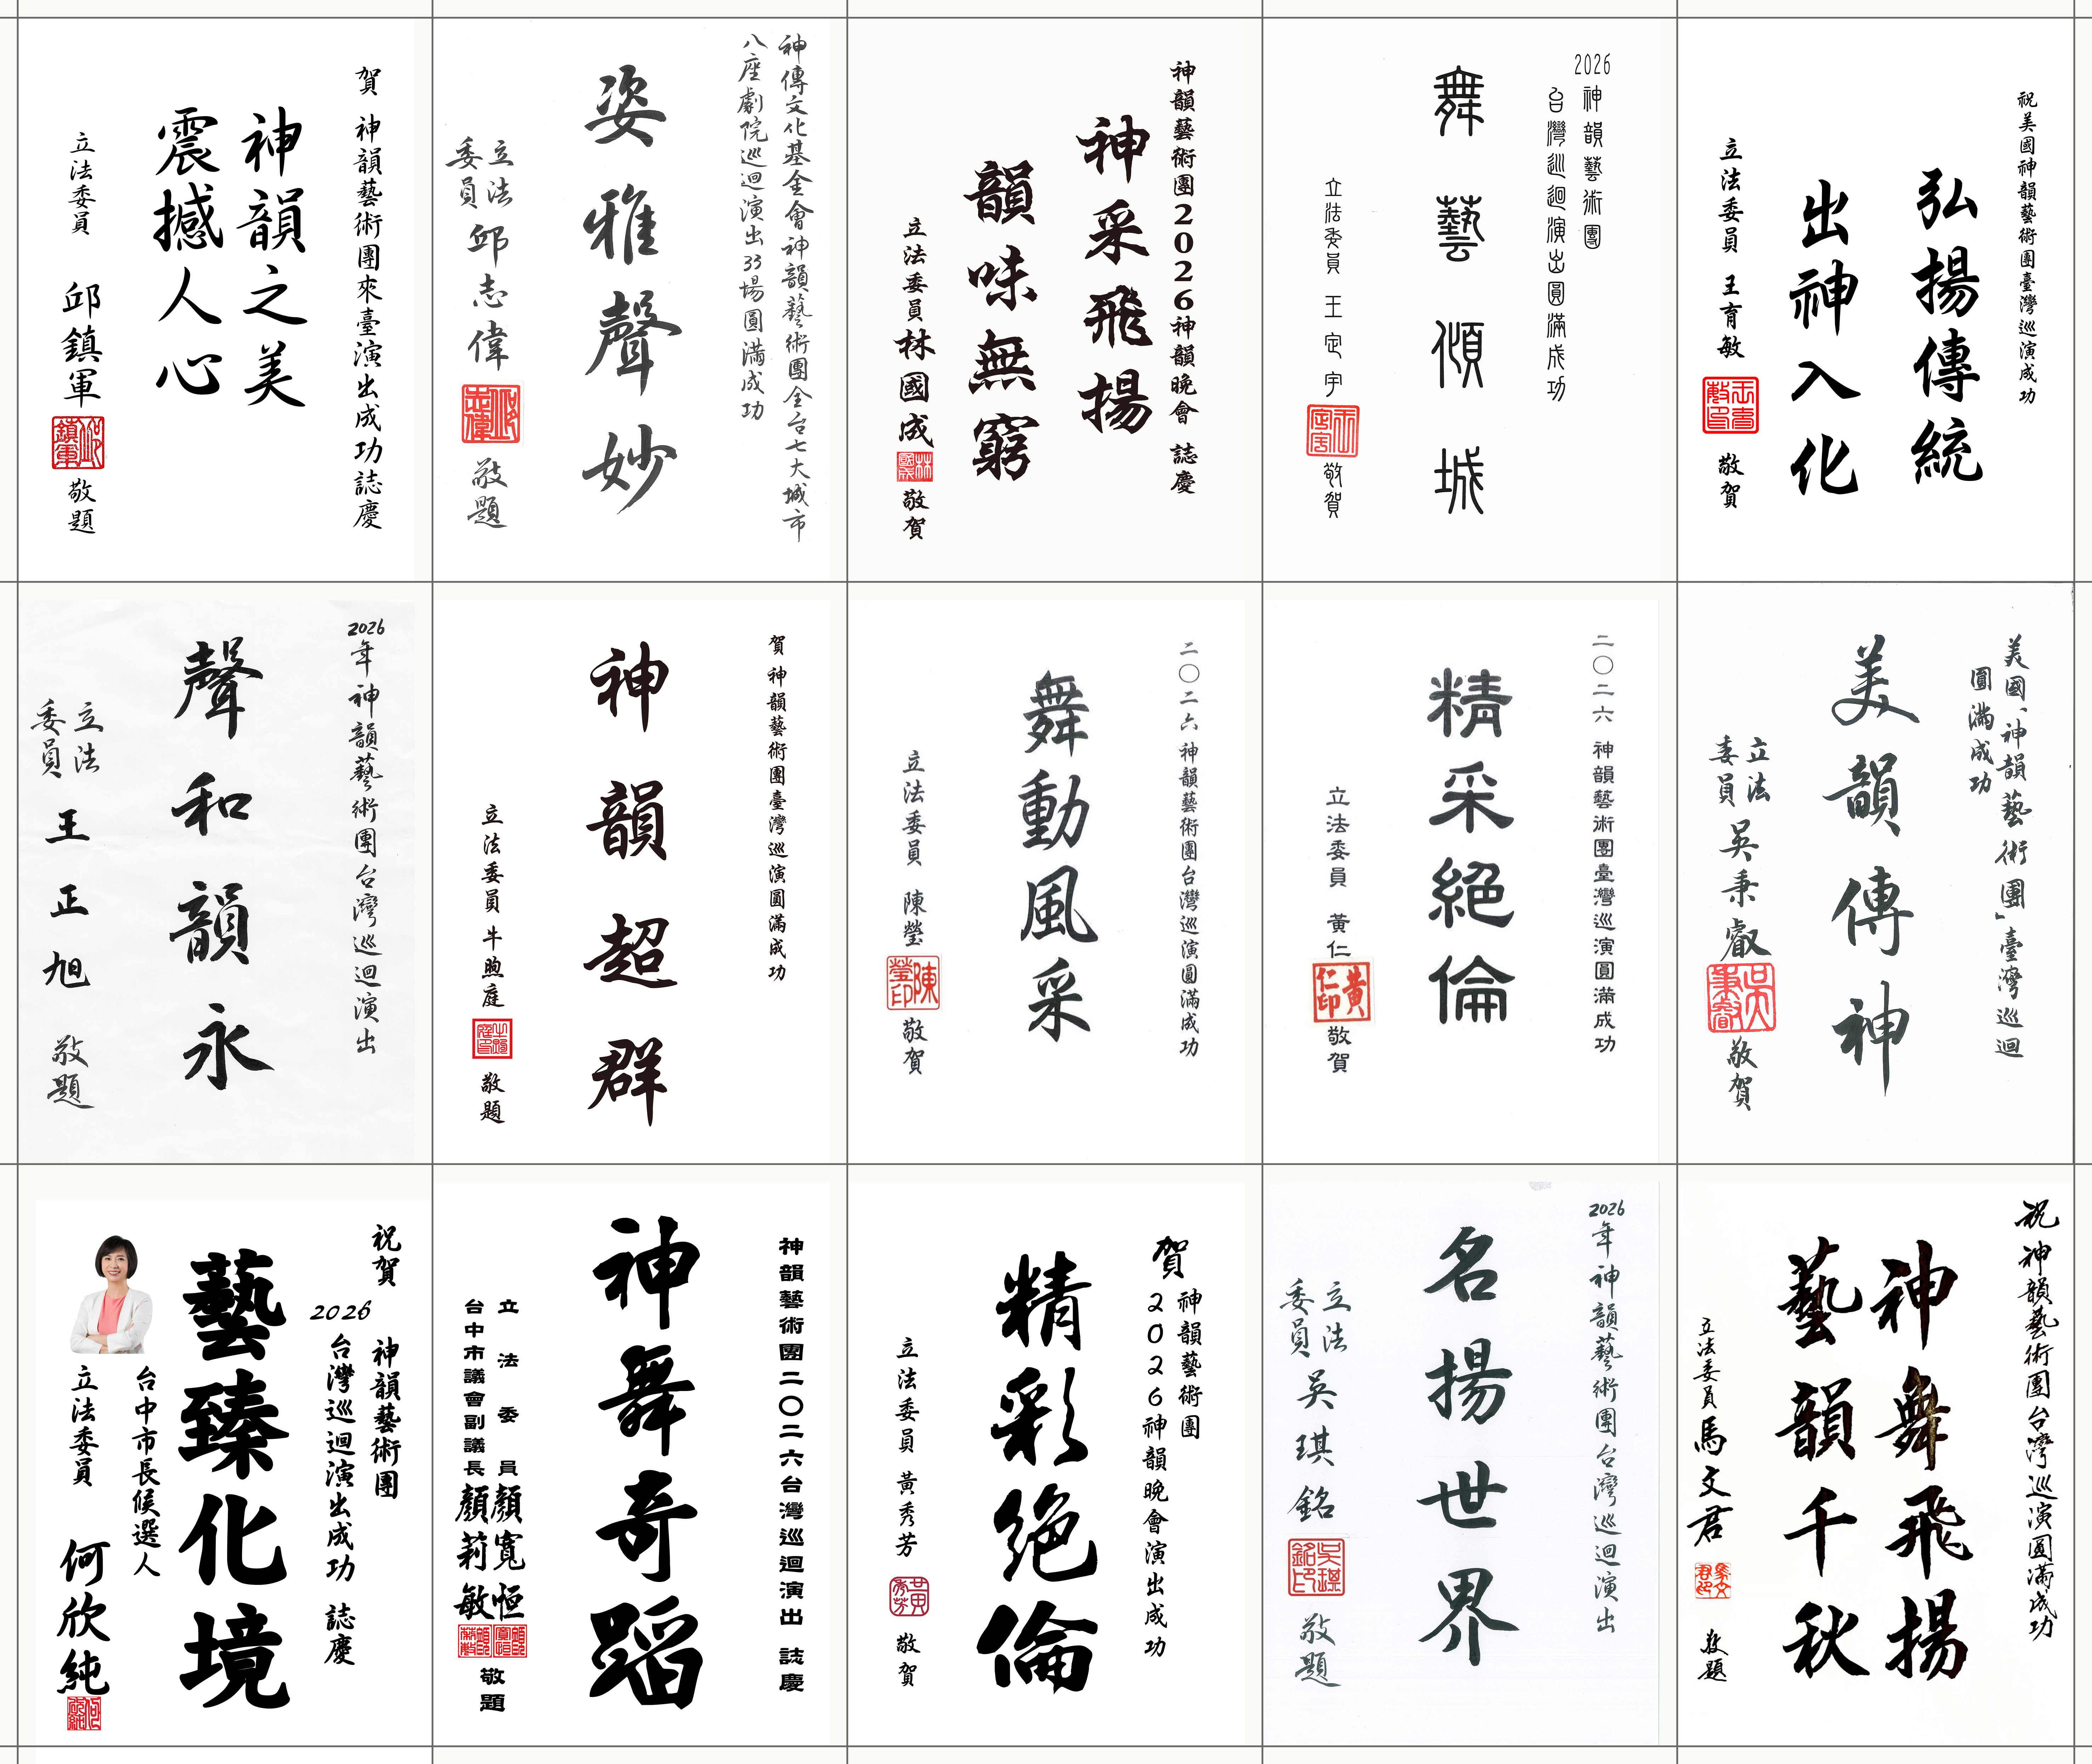 賀 神韻藝術團來臺演出成功誌慶
神韻之美
震撼人心
立法委員 邱鎮軍 敬題
神傳文化基金會神韻藝術團全台七大城市
八座劇院巡迴演出33場圓滿成功
姿雅聲妙
立法委員 邱志偉 敬題
神韻藝術團2026神韻晚會 誌慶
神采飛揚
韻味無窮
立法委員 林國成 敬賀
2026神韻藝術團
台灣巡迴演出圓滿成功
舞藝傾城
立法委員 王定宇 敬賀
祝美國神韻藝術團臺灣巡演成功
弘揚傳統
出神入化
立法委員 王育敏 敬賀
2026年神韻藝術團台灣巡迴演出
聲和韻永
立法委員 王正旭 敬題
賀 神韻藝術團臺灣巡演圓滿成功
神韻超群
立法委員 牛煦庭 敬題
二〇二六神韻藝術團台灣巡演圓滿成功
舞動風采
立法委員 陳瑩 敬賀
二〇二六 神韻藝術團臺灣巡演圓滿成功
精采絕倫
立法委員 黃仁 敬賀
美國「神韻藝術團」臺灣巡迴
圓滿成功
美韻傳神
立法委員 吳秉叡 敬賀
祝賀
神韻藝術團
2026台灣巡迴演出成功 誌慶
藝臻化境
台中市長候選人
立法委員 何欣純
神韻藝術團二〇二六台灣巡迴演出 誌慶
神舞奇蹈
立法委員 顏寬恒
台中市議會副議長 顏莉敏
敬題
賀 神韻藝術團
2026神韻晚會演出成功
精彩絕倫
立法委員 黃秀芳 敬賀
2026年神韻藝術團台灣巡迴演出
名揚世界
立法委員 吳琪銘 敬題
祝 神韻藝術團台灣巡演圓滿成功
神舞飛揚
藝韻千秋
立法委員 馬文君 敬題